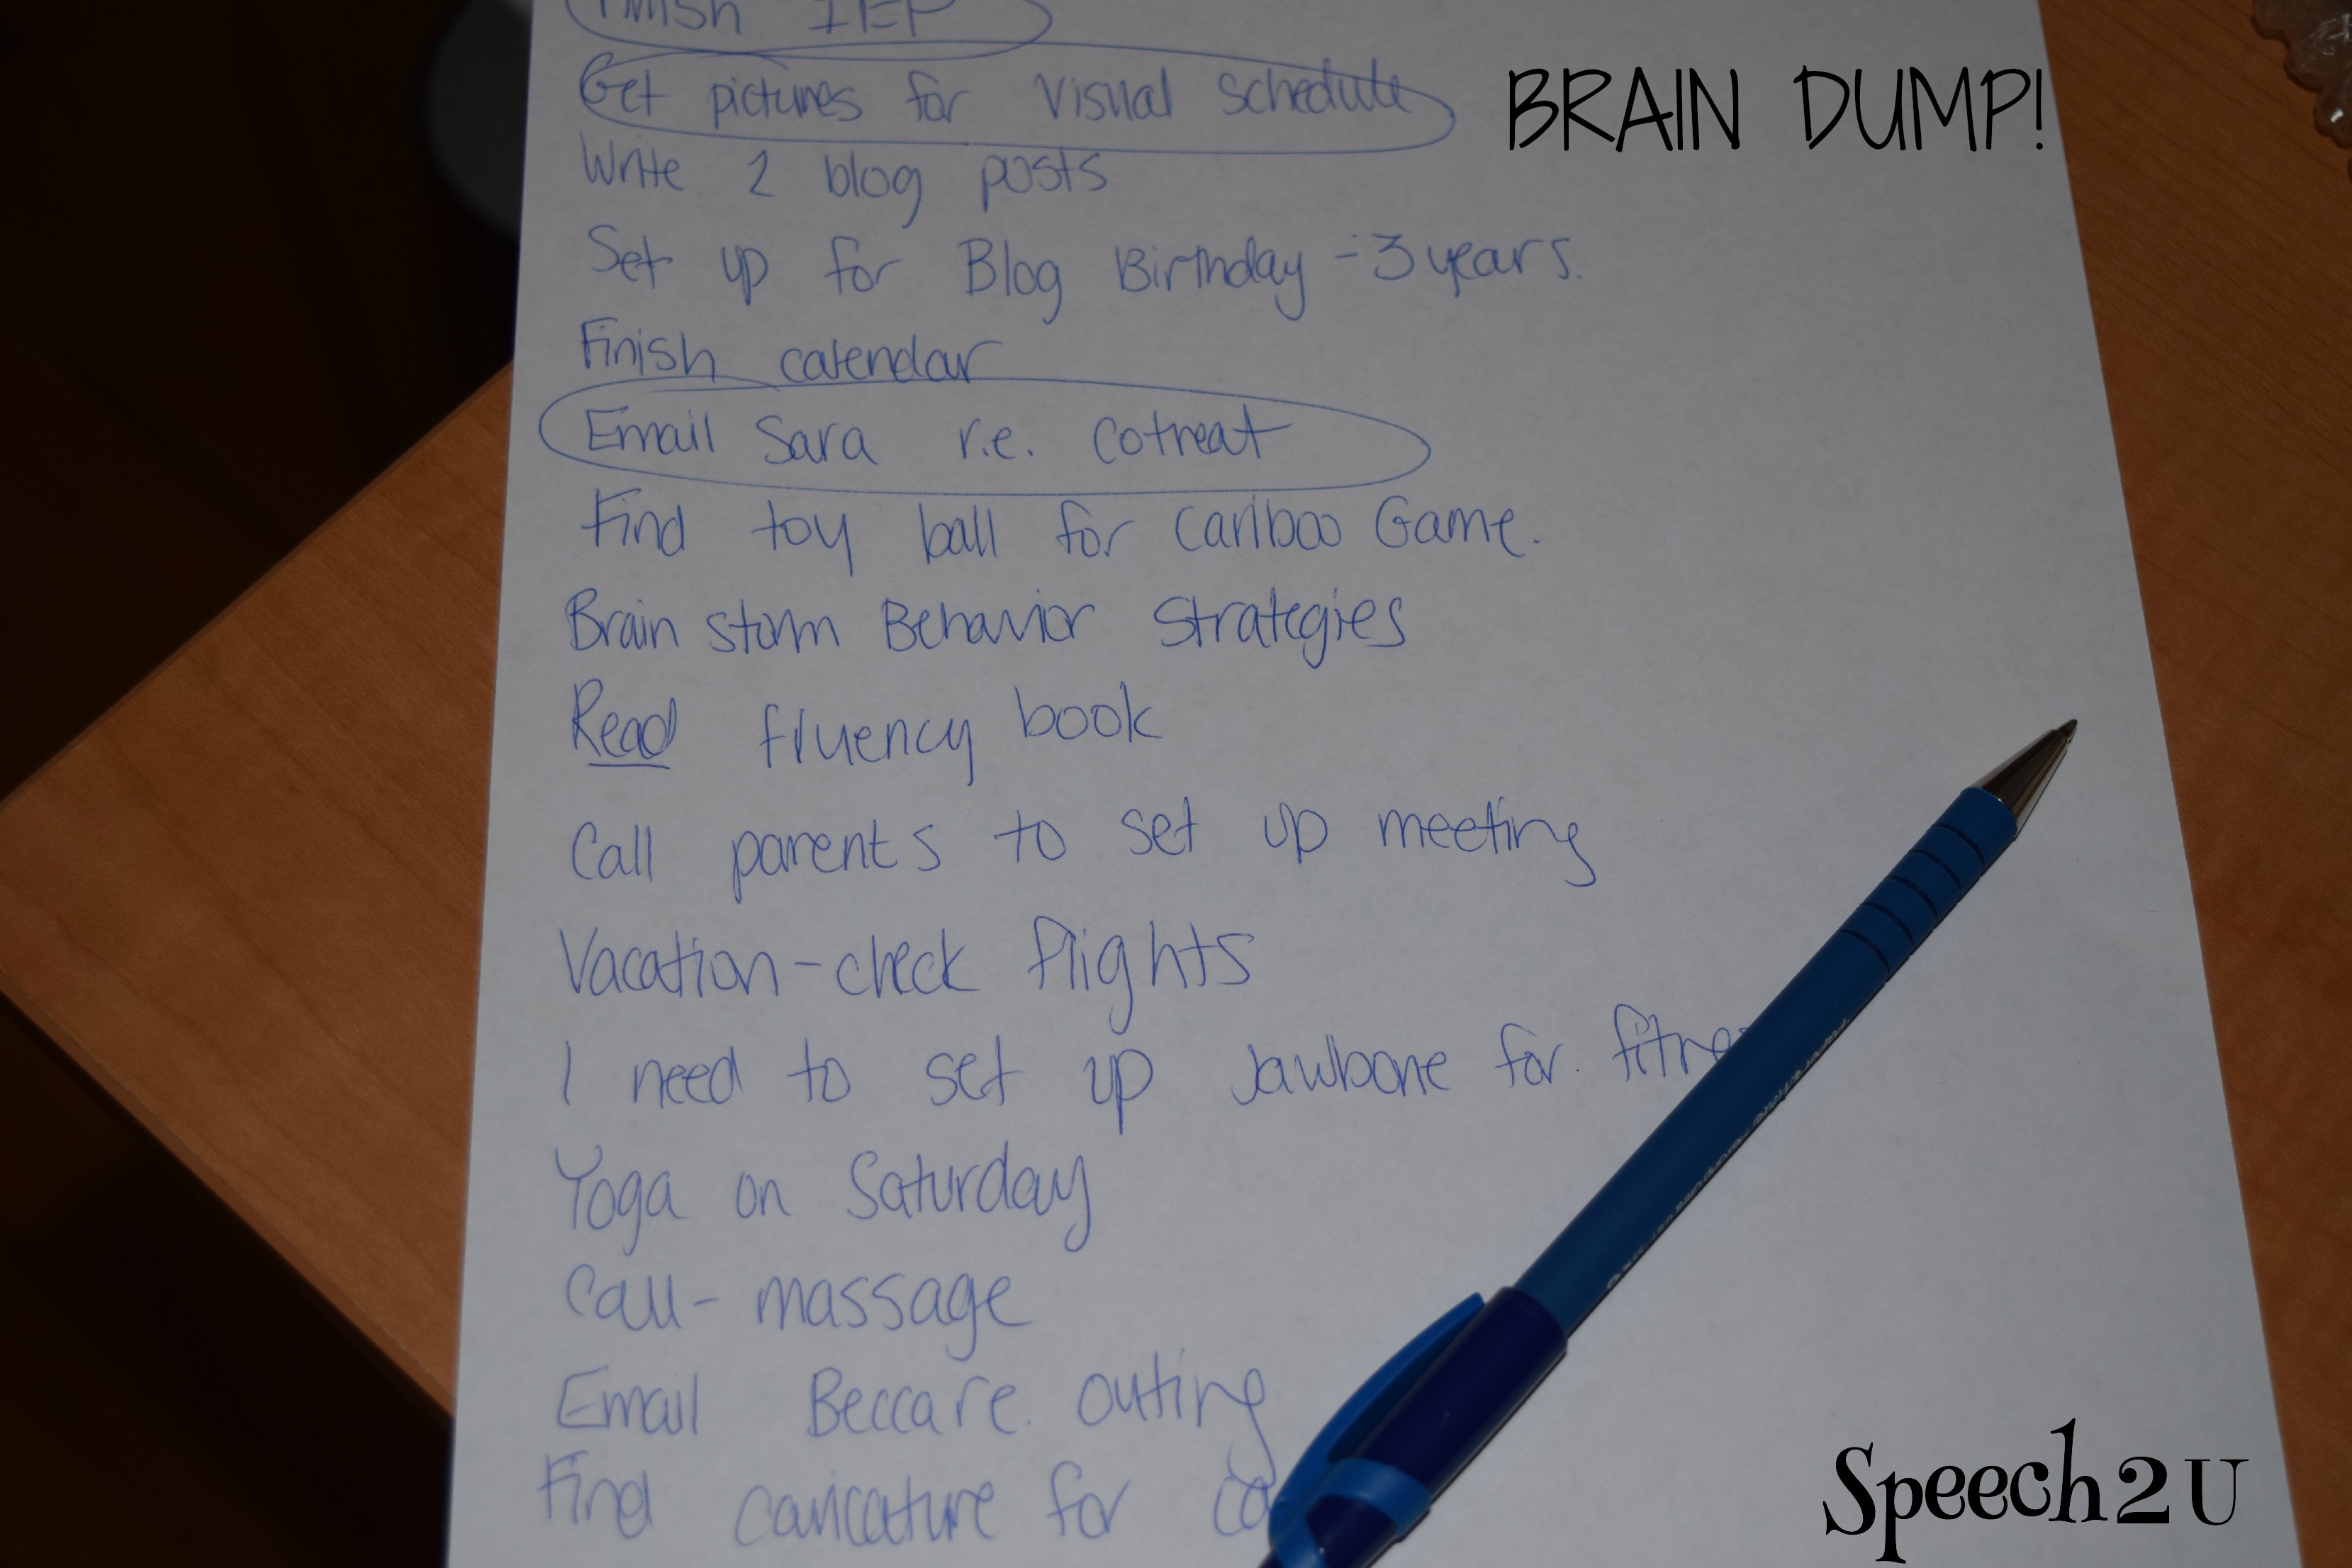 Finish IEP
Get pictures for Visual Schedule
BRAIN DUMP!
Write 2 blog posts
Set up for Blog Birthday - 3 years.
Finish calendar
Email Sara r.e. cotreat
Find toy ball for Cariboo Game.
Brain storm Behavior Strategies
Read fluency book
Call parents to set up meeting
Vacation - check flights
I need to set up Jawbone for fitne
Yoga on Saturday
Call - massage
Email Becca re. outing
Find caricature for co
Speech2U